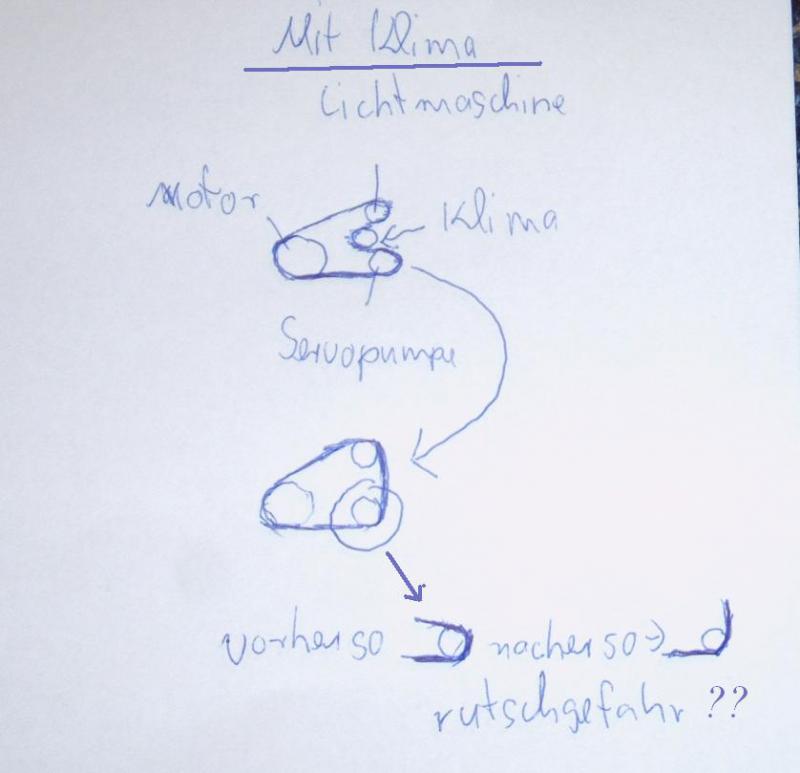 Mit Klima
Lichtmaschine
Motor
Klima
Servopumpe
vorher so nacher so →
rutschgefahr ??